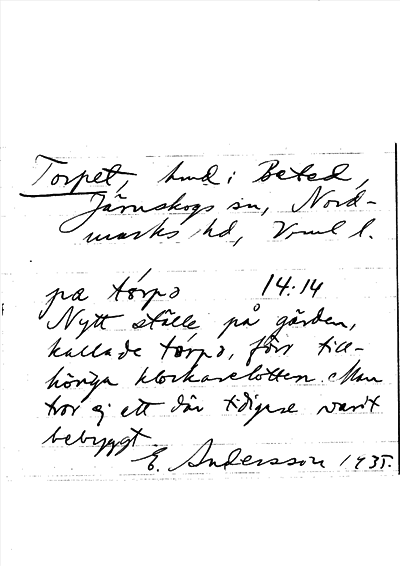 Torpet, hmd i Beted,
Järnskogs sn, Nord-
marks hd, Vrml l.
pœ tórpə 14.14
Nytt ställe på gården,
kallade tórpə, förr till-
höriga klockarelotten. Man
tror ej att där tidigare varit
bebyggt.
E. Andersson 1935.